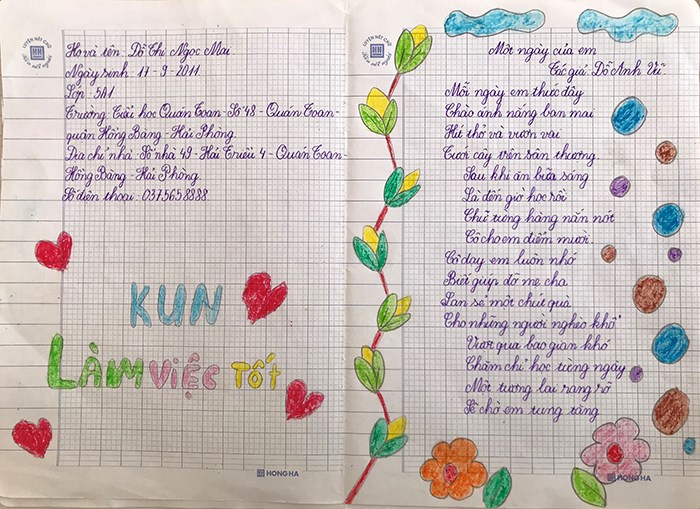 Họ và tên: Đỗ Thị Ngọc Mai
Ngày sinh: 17-9-2011
Lớp: 5A1
Trường Tiểu học Quán Toan - Số 48 - Quán Toan-
quận Hồng Bàng - Hải Phòng
Địa chỉ nhà: Số nhà 49 - Hải Triều 4 - Quán Toan-
Hồng Bàng - Hải Phòng
Số điện thoại: 037.565.8888
KUN
LÀM VIỆC TỐT
HONG HA
Một ngày của em
Tác giả: Đỗ Anh Vũ.
Mỗi ngày em thức dậy
Chào ánh nắng ban mai
Hít thở và vươn vai
Tưới cây trên sân thượng.
Sau khi ăn bữa sáng
Là đến giờ học rồi
Chữ từng hàng nắn nót
Cô cho em điểm mười.
Cô dạy em luôn nhớ
Biết giúp đỡ mẹ cha
San sẻ một chút quà
Cho những người nghèo khổ
Vượt qua bao gian khó
Chăm chỉ học từng ngày
Một tương lai rạng rỡ
Sẽ chờ em tung tăng
HONG HA